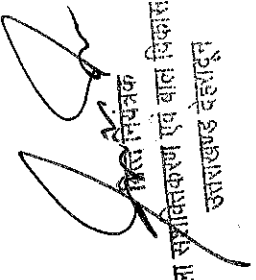 वित्त नियंत्रक
ला सशक्तिकरण एवं बाल विकास
उत्तराखण्ड देहरादून